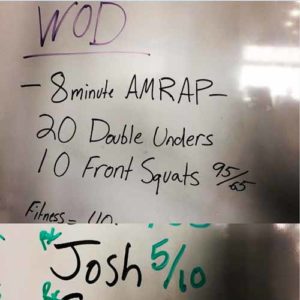 WOD
- 8 minute AMRAP -
20 Double Unders
10 Front Squats 95/65
Fitness =
Rx
Josh 5/10
Rx